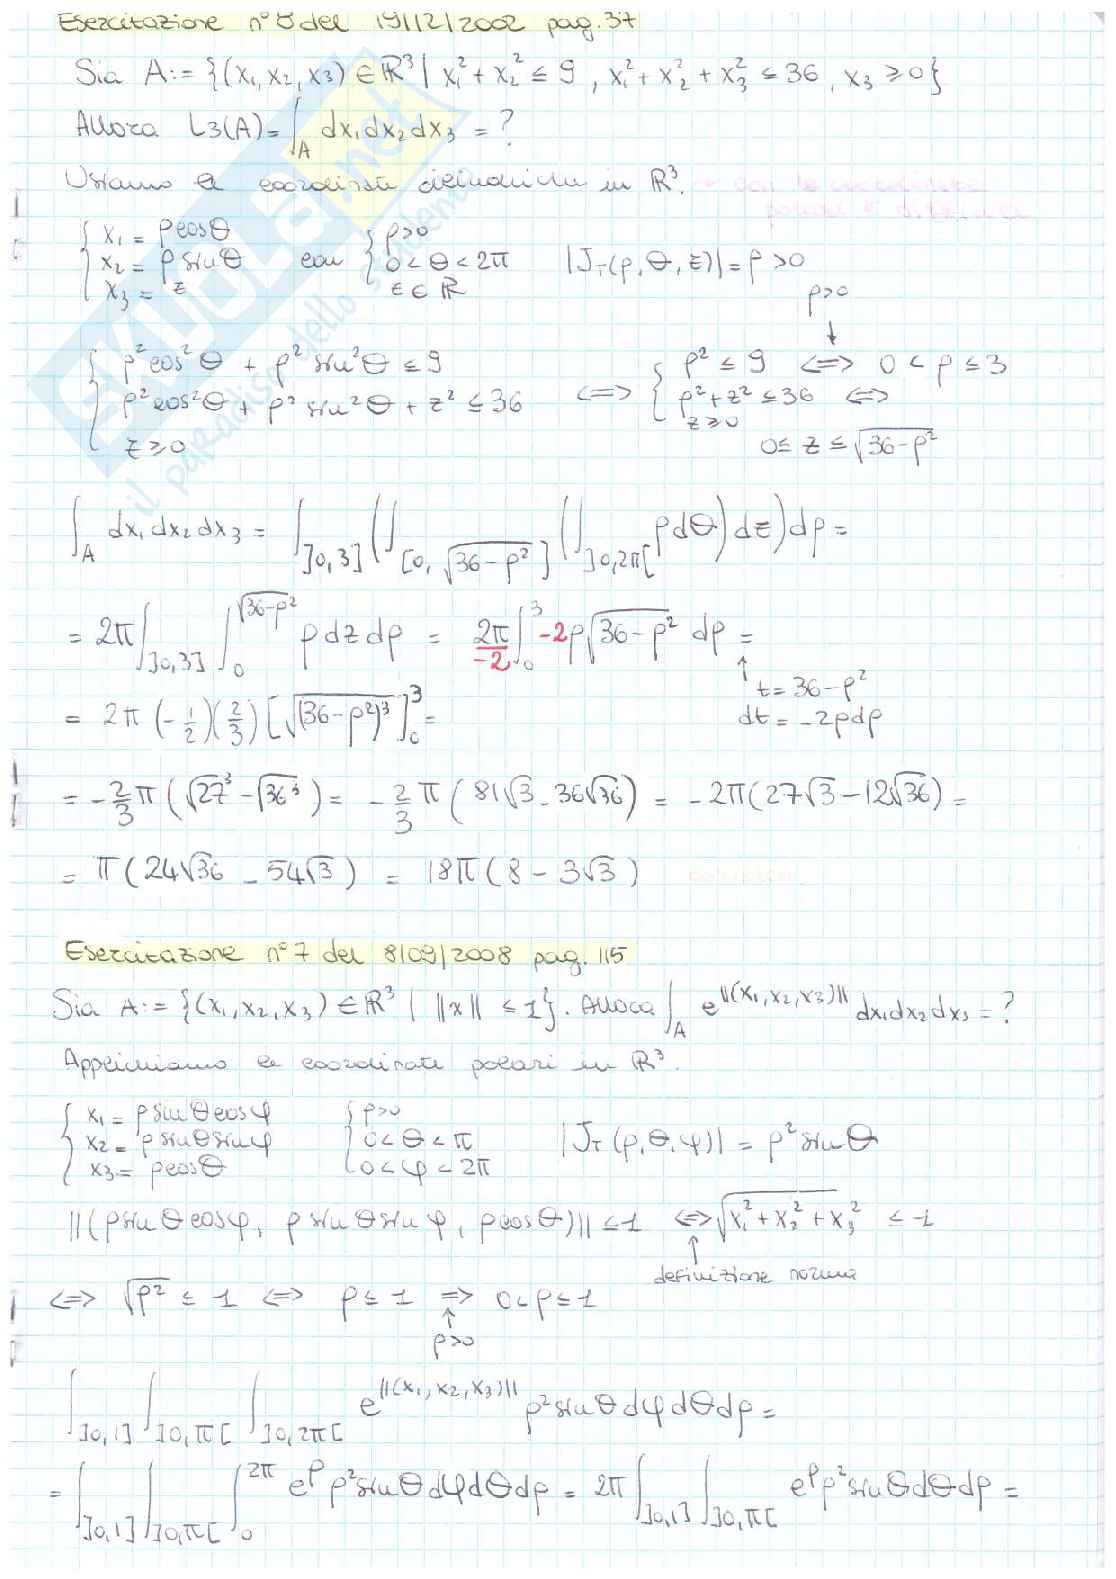 Esercitazione n°8 del 19/12/2002 pag. 37
Sia A := {(x₁, x₂, x₃) ∈ ℝ³ | x₁² + x₂² ≤ 9, x₁² + x₂² + x₃² ≤ 36, x₃ ≥ 0}
Allora L3(A) = ∫_A dx₁ dx₂ dx₃ = ?
Usiamo le coordinate cilindriche in ℝ³.
{ x₁ = ρcosθ   x₂ = ρ sinθ   x₃ = z   con { ρ>0   0 < θ < 2π   z ∈ ℝ   |J_T(ρ, θ, z)| = ρ > 0
ρ>0
↓
{ ρ²cos²θ + ρ² sin²θ ≤ 9   { ρ² ≤ 9 ⟺ 0 < ρ ≤ 3
ρ²cos²θ + ρ² sin²θ + z² ≤ 36 ⟺ ρ² + z² ≤ 36 ⟺
z ≥ 0   z ≥ 0   0 ≤ z ≤ √(36-ρ²)
∫_A dx₁ dx₂ dx₃ = ∫_]0,3] (∫_[0, √(36-ρ²)] (∫_]0,2π[ ρdθ) dz) dρ =
= 2π ∫_]0,3] ∫_0^√(36-ρ²) ρ dz dρ = 2π/-2 ∫_0^3 -2ρ√(36-ρ²) dρ =
↑ t = 36-ρ²
dt = -2ρdρ
= 2π (-1/2)(2/3) [√(36-ρ²)³]_0^3 =
= -2/3 π (√27³ - √36³) = -2/3 π (81√3 - 36√36) = -2π(27√3 - 12√36) =
= π(24√36 - 54√3) = 18π(8 - 3√3)
Esercitazione n°7 del 8/09/2008 pag. 115
Sia A := {(x₁, x₂, x₃) ∈ ℝ³ | ||x|| ≤ 1}. Allora ∫_A e^||(x₁, x₂, x₃)|| dx₁dx₂dx₃ = ?
Applichiamo le coordinate polari in ℝ³.
{ x₁ = ρ sinθcosφ   { ρ>0
x₂ = ρ sinθ sinφ   0 < θ < π   |J_T(ρ, θ, φ)| = ρ² sinθ
x₃ = ρcosθ   0 < φ < 2π
||(ρ sinθ cosφ, ρ sinθ sinφ, ρcosθ)|| ≤ 1 ⟺ √(x₁² + x₂² + x₃²) ≤ 1
↑
definizione norma
⟺ √ρ² ≤ 1 ⟺ ρ ≤ 1 ⇒ 0 < ρ ≤ 1
↑
ρ>0
∫_]0,1] ∫_]0,π[ ∫_]0,2π[ e^||(x₁, x₂, x₃)|| ρ² sinθ dφ dθ dρ =
= ∫_]0,1] ∫_]0,π[ ∫_0^2π e^ρ ρ² sinθ dφ dθ dρ = 2π ∫_]0,1] ∫_]0,π[ e^ρ ρ² sinθ dθ dρ =
SKUOLA.net
il paradiso dello studente